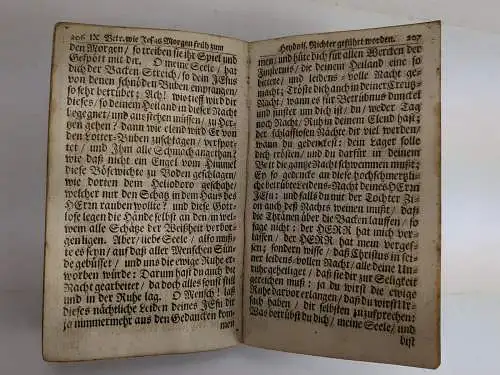 206 IX Betr. wie Jesus Morgen früh zum
den Morgen/ so treiben sie ihr Spiel und
Gespött mit dir. O meine Seele/ hat
dich der Backen Streich/ so dein JEsus
von denen schnöden Buben empfangen/
so sehr betrübet; Ach! wie tieff wird dir
dieses/ so deinem Heiland in dieser Nacht
begegnet/ und ausstehen müssen/ zu Her-
zen gehen/ dann wie elend wird Er von
den Lotter-Buben zuschlagen/ verspot-
tet/ und Ihm alle Schmach angethan/
wie daß nicht ein Engel vom Himmel
diese Bösewichte zu Boden geschlagen/
wie dorten dem Heliodoro geschahe/
welcher mit den Schätz in dem Haus des
HErrn rauben wollte? und diese Gott-
lose legen die Hände selbst an den/ in wel-
chem alle Schätze der Weißheit verbor-
gen ligen. Aber/ liebe Seele/ also muß-
te es seyn/ auf daß aller Menschen Sün-
de gebüsset/ und uns die ewige Ruhe er-
worben würde: Darum hast du auch die
Nacht gearbeitet/ da doch alles sonst still
und in der Ruhe lag. O Mensch! laß
dieses nächtliche Leiden deines JEsu dir
ja nimmermehr aus den Gedancken kom-
men
Heydnis. Richter geführt worden. 207
men/ und hüte dich für allen Wercken der
Finsternis/ die deinem Heiland eine so
betrübte/ und leidens-volle Nacht ge-
macht; Tröste dich auch in deiner Creutz-
Nacht/ wann es für Betrübnus dunckel
und finster um dich ist/ du/ weder Tag
noch Nacht/ Ruh in deinem Elend hast;
der schlaflosen Nächte dir viel werden/
wann du gedenckest: dein Lager solle
dich trösten/ und du darfür in deinem
Bett die gantze Nacht schwemmen mußt;
Ey so gedencke an diese hochschmerzli-
che betrübte Leidens-Nacht deines HErrn
JEsu: und falls du mit der Tochter Zi-
on auch deß Nachts weinen mußt/ daß
die Thränen über die Backen lauffen/ so
sage nicht: der HERR hat mich ver-
lassen/ der HERR hat mein verges-
sen; sondern wisse/ daß Christus in sei-
ner leidens-vollen Nacht/ alle deine Un-
ruhe geheiliget/ daß sie dir zur Seligkeit
ausschlagen muß: ja du wirst die ewige
Ruhe darvor erlangen/ daß du wirst Ur-
sach haben/ dir selbsten zuzusprechen:
Was betrübst du dich/ meine Seele/ und
bist